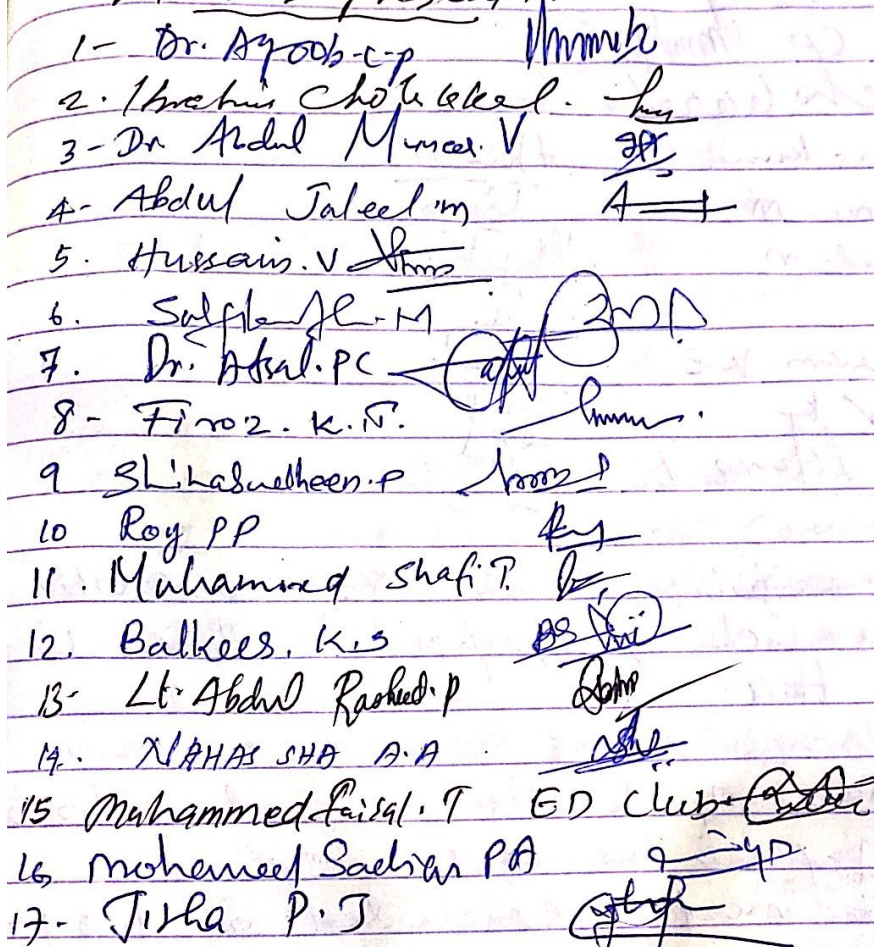 1- Dr. Ayoob-c-p
2. Ibrahim Cholakkal.
3- Dr Abdul Muneer. V
4- Abdul Jaleel.m
5. Hussain. V
6. M
7. Dr. Afsal. PC
8- Firoz. K.T.
9 Shihabudheen.P
10 Roy PP
11. Muhammed Shafi T.
12. Balkees. K.S
13- Lt. Abdul Rasheed.P
14. NAHAS SHA A.A
15 Muhammed faisal. T ED Club
16 Mohamed Sadiq PA
17- Jisha P.J